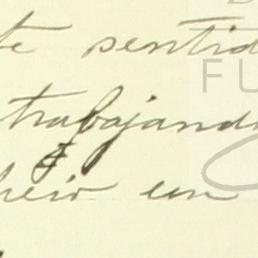 te sentid
FU
trabajand
heio un